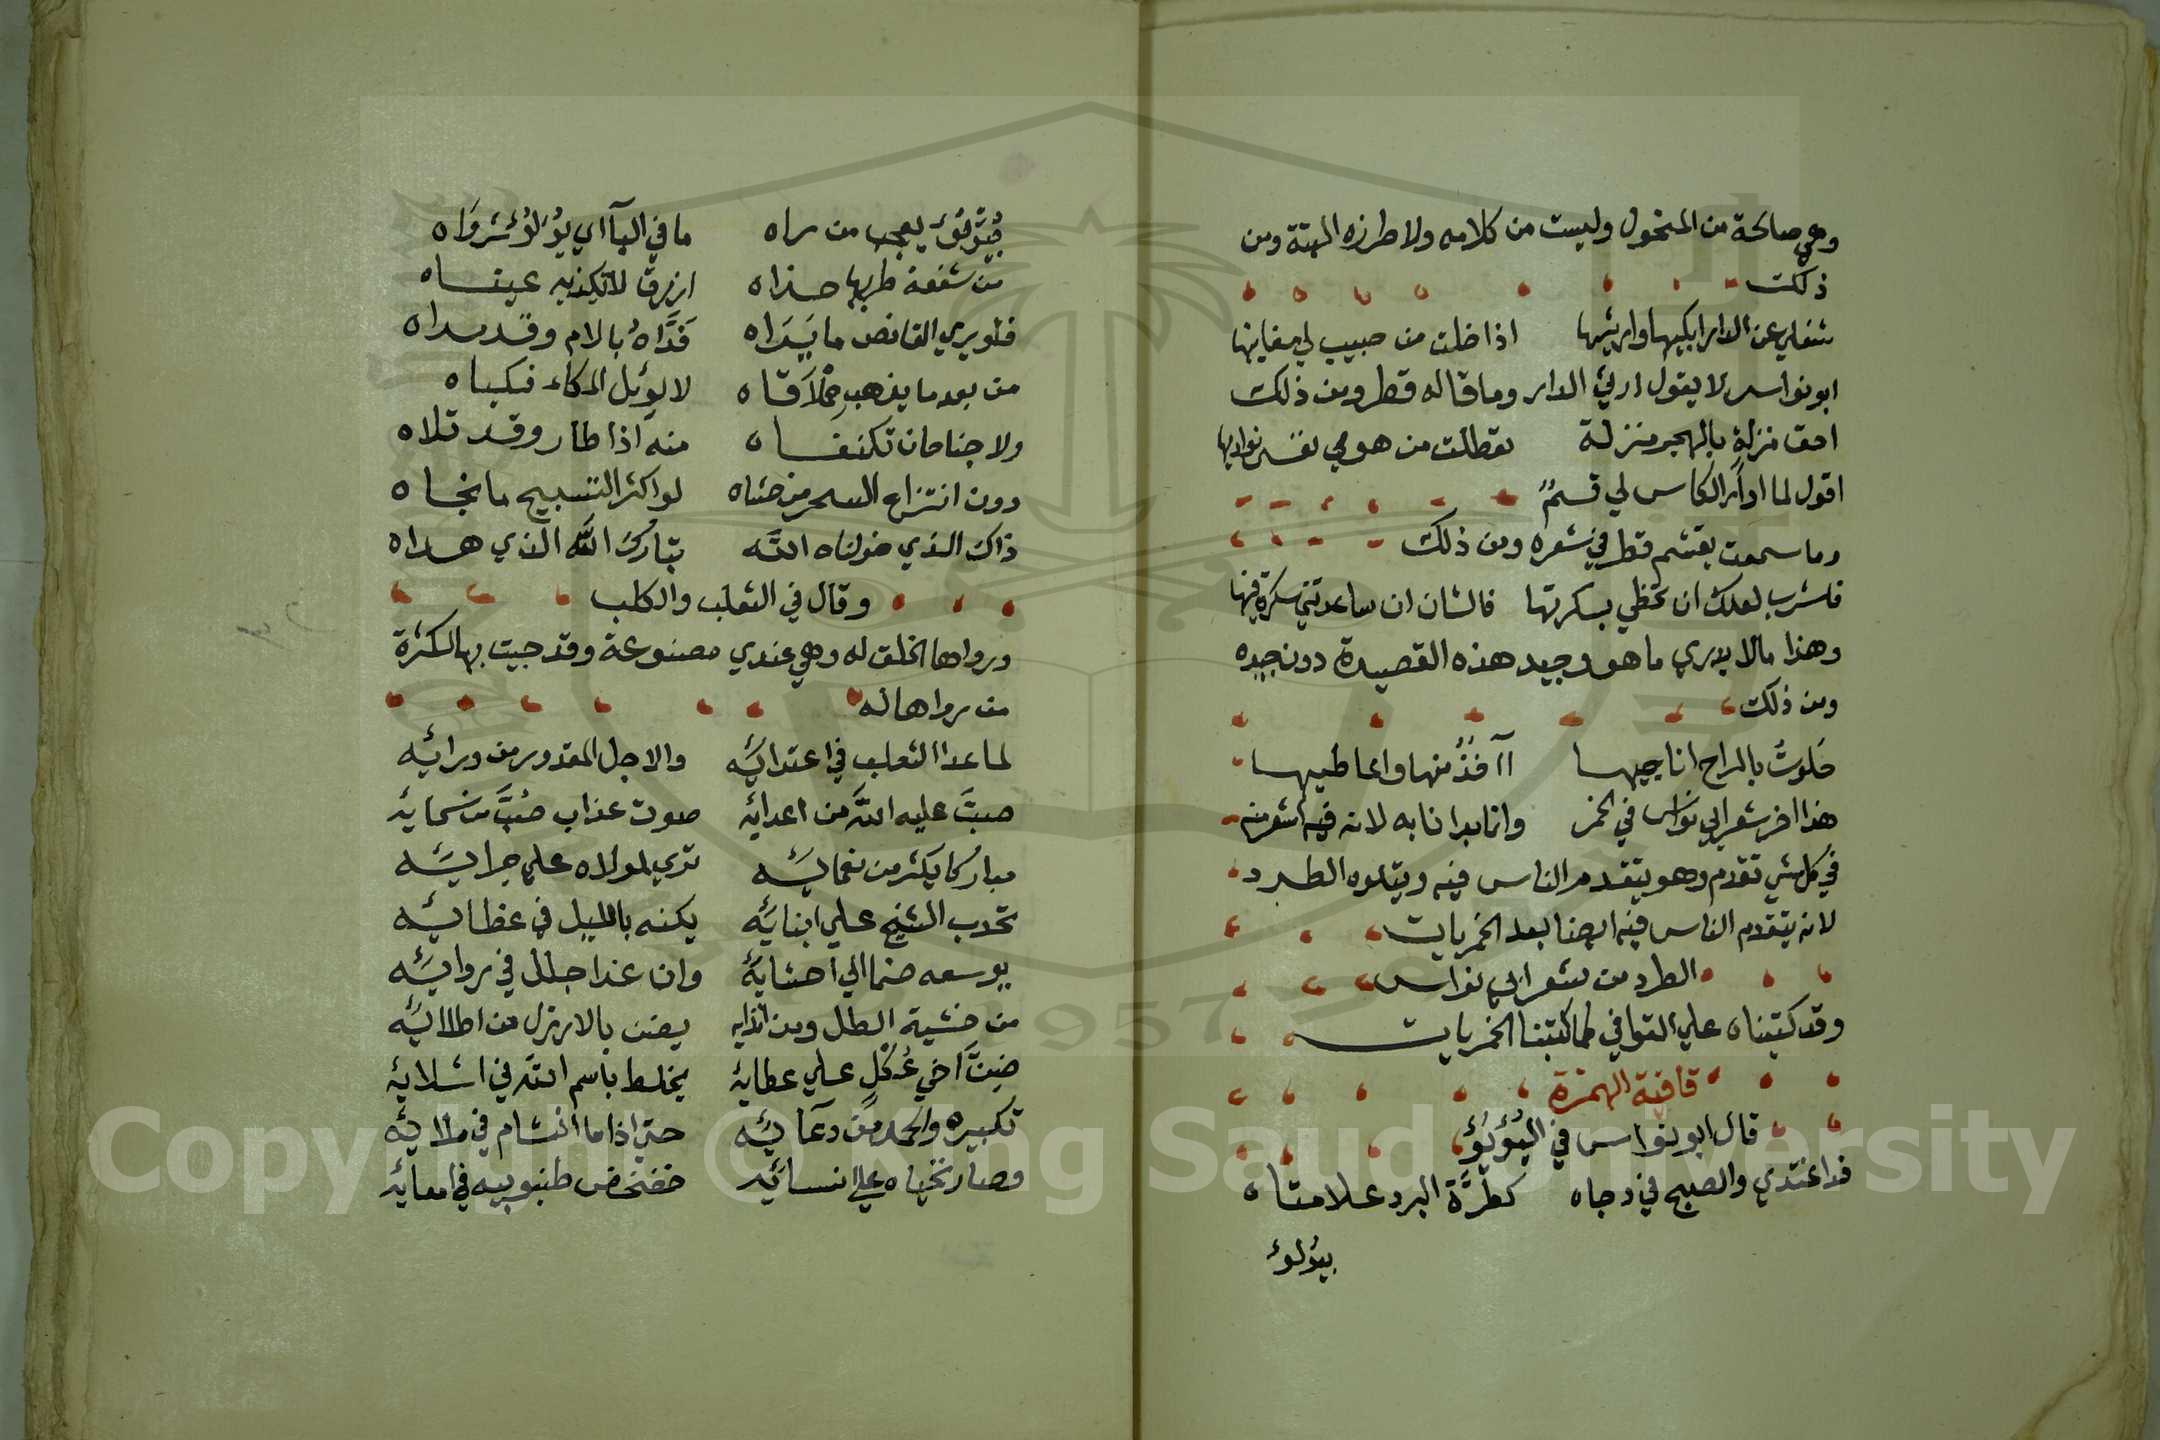 وهي صالحة من المنحول وليست من كلامه ولا طرزه البتة ومن
ذلك
شغلي عن الدار ابكيها وارثيها اذا خلت من حبيب لي مغانيها
ابو نواس لا يقول ارثي الدار وما قاله قط ومن ذلك
احق منزلة بالهجر منزلة تعطلت من هوي نفسي نواديها
اقول لما ادار الكاس لي قثم
وما سمعت بقثم قط في شعره ومن ذلك
فاشرب لعلك ان تحظي بسكرتها فالشان ان ساعدتني سكرة فيها
وهذا مالا يدري ما هو وجيد هذه القصيدة دون جيده
ومن ذلك
خلوت بالراح اناجيها آآخذ منها واعاطيها
هذا اخر شعر ابي نواس في الخمر وانما بدانا به لانه فيه اشعر منه
في كل شي تقدم وهو يتقدم الناس فيه ويتلوه الطرد
لانه يتقدم الناس فيه ايضا بعد الخمريات
الطرد من شعر ابي نواس
وقد كتبناه علي القوافي كما كتبنا الخمريات
قافية الهمزة
قال ابو نواس في اليُؤيُؤ
قد اغتدي والصبح في دجاه كطرَّة البرد علا متناه
بيُؤلوء
يعجب من راه ما في اليآاي يُؤلؤ شرواه
من سفعة طربها خداه ازرق لا تكذبه عيناه
فلو يري القانص ما يَرَاه فَدَّاهُ بالام وقد فداه
من بعد ما يذهب حملاقاه لا يوئل المكاء منكباه
ولا جناحان تكنفاه منه اذا طار وقد تلاه
دون انتزاع السحر من حشاه لو اكثر التسبيح ما نجاه
ذاك الذي خولناه الله تبارك الله الذي هداه
وقال في الثعلب والكلب
ورواها الخلق له وهي عندي مصنوعة وقد جيت بها لكثرة
من رواها له
لما غدا الثعلب في اعتدايَه والاجل المقدور من ورائيَه
صبَّ عليه الله من اعدائِه صوت عذاب صُبَّ من سمايِه
مباركا يكثر من نعمائِه تري لمولاه علي جرائِه
تحدب الشيخ علي ابنايَه يكنه بالليل في غطائِه
يوسعه ضما الي احشايَه وان غدا جلل في ردائِه
من خشية الطل ومن اندايه يضن بالارذل من اطلائِه
ضنَّ اخي عُكلٍ علي عطايِه يخلط باسم الله في اشلايِه
تكبيره والحمد من دعآئِه حتي اذا ما انشام في ملائِه
وصار نحياه علي انسائِه خضخض طنبوبيه في امعايِه